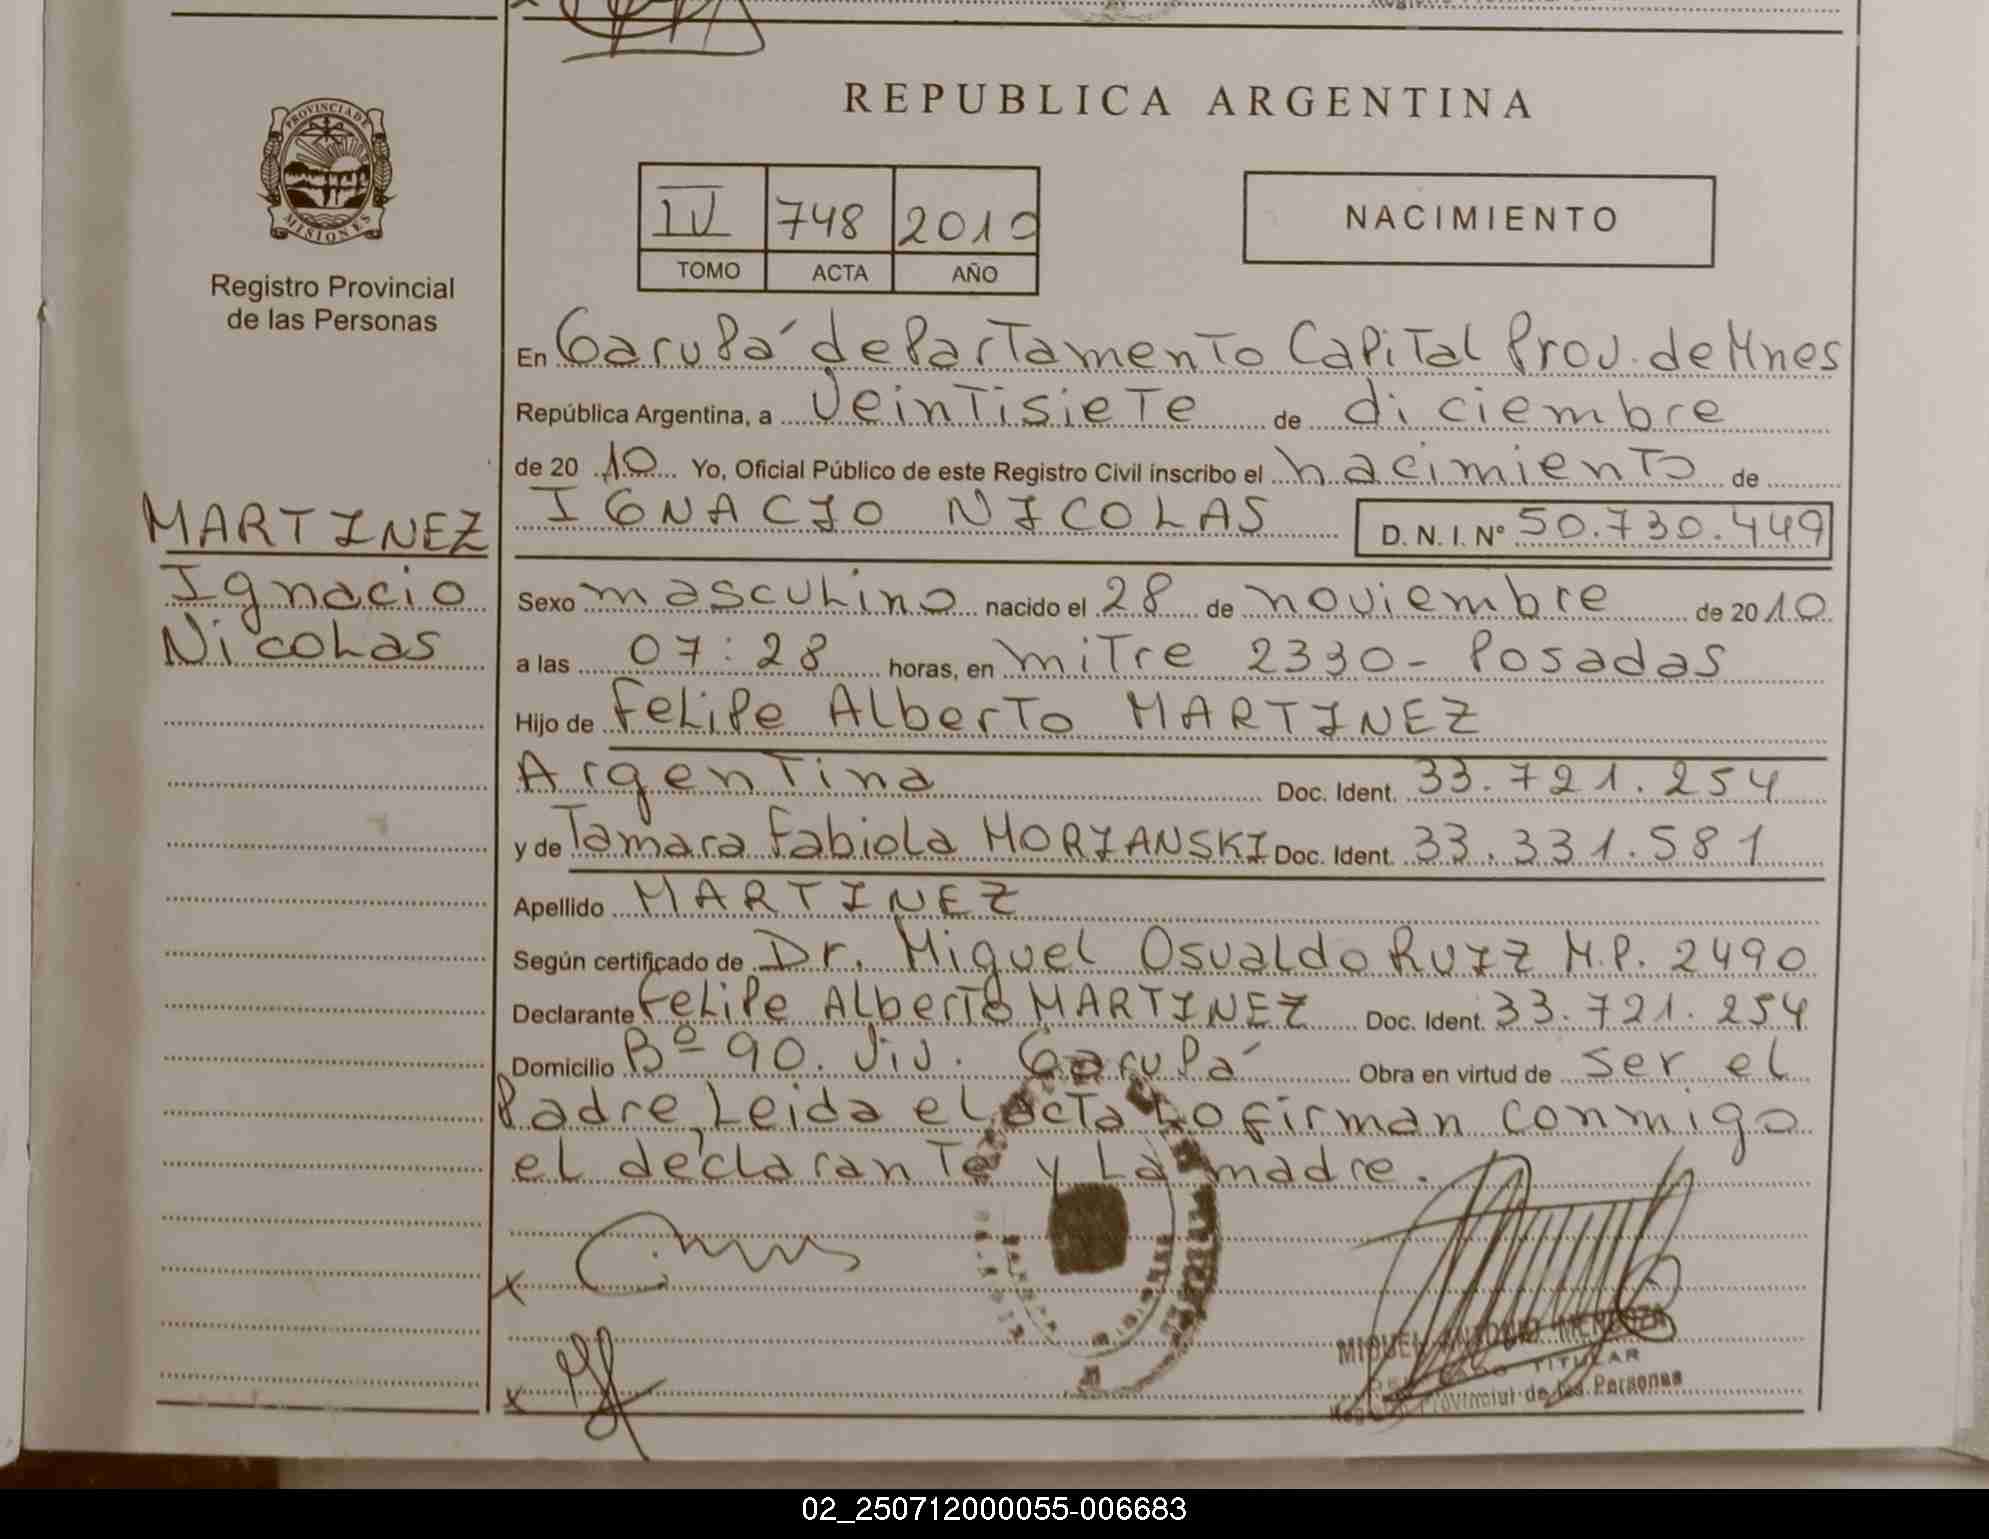 REPUBLICA ARGENTINA
PROVINCIA DE MISIONES
Registro Provincial
de las Personas
IV 748 2010
TOMO ACTA AÑO
NACIMIENTO
En Garupá departamento Capital Prov. de Mnes
República Argentina, a Veintisiete de diciembre
de 2010 Yo, Oficial Público de este Registro Civil inscribo el nacimiento de
IGNACIO NICOLAS D. N. I. Nº 50.730.449
MARTINEZ
Ignacio
Nicolas
Sexo masculino nacido el 28 de noviembre de 2010
a las 07:28 horas, en mitre 2330 - Posadas
Hijo de Felipe Alberto MARTINEZ
Argentina Doc. Ident. 33.721.254
y de Tamara Fabiola MORIANSKI Doc. Ident. 33.331.581
Apellido MARTINEZ
Según certificado de Dr. Miguel Osvaldo RUIZ M.P. 2490
Declarante Felipe Alberto MARTINEZ Doc. Ident. 33.721.254
Domicilio Bº 90. Viv. Garupá Obra en virtud de ser el
Padre, Leida el acta Lo firman conmigo
el declarante y La madre.
x
x
MIGUEL ANTONIO MENDOZA
TITULAR
Registro Provincial de las Personas
02_250712000055-006683